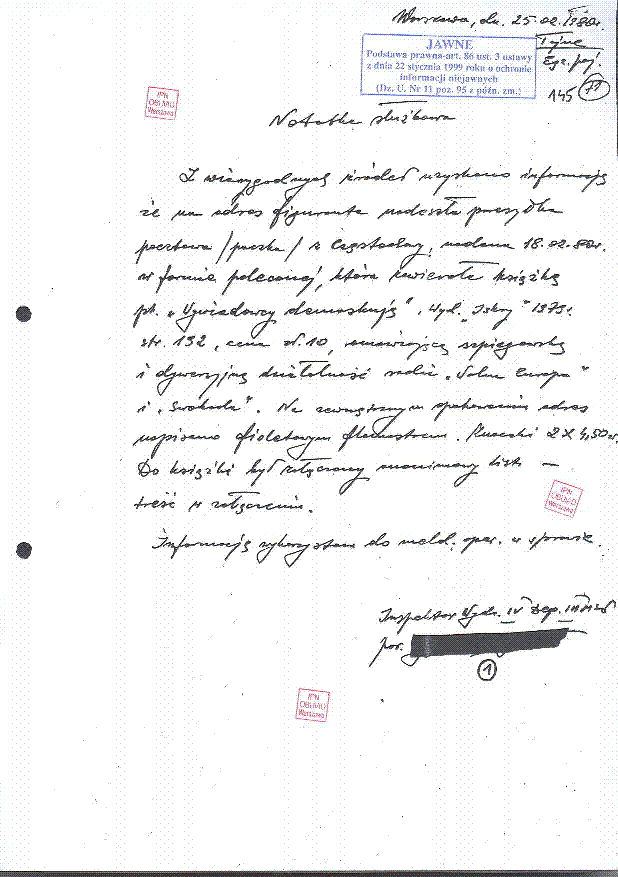 Warszawa, dn. 25.02.1980r.
Tajne
Egz. poj.
JAWNE
Podstawa prawna-art. 86 ust. 3 ustawy
z dnia 22 stycznia 1999 roku o ochronie
informacji niejawnych
(Dz. U. Nr 11 poz. 95 z późn. zm.)
145
IPN
OBUiAD
Warszawa
Notatka służbowa
Z wiarygodnych źródeł uzyskano informację
że na adres figuranta nadeszła przesyłka
pocztowa /paczka/ z Częstochowy, nadana 18.02.80r.
w formie poleconej, która zawierała książkę
pt. „Wywiadowcy demaskują". Wyd. „Iskry" 1979r.
str. 192, cena zł. 10, omawiającą szpiegowską
i dywersyjną działalność radia „Wolna Europa"
i „Swoboda". Na zewnętrznym opakowaniu adres
napisano fioletowym flamastrem. Znaczki 2 x 4,50 zł.
Do książki był załączony anonimowy list —
treść w załączeniu.
IPN
OBUiAD
Warszawa
Informację wykorzystano do meld. oper. w sprawie.
Inspektor Wydz. IV Dep. III MSW
por.
1
IPN
OBUiAD
Warszawa